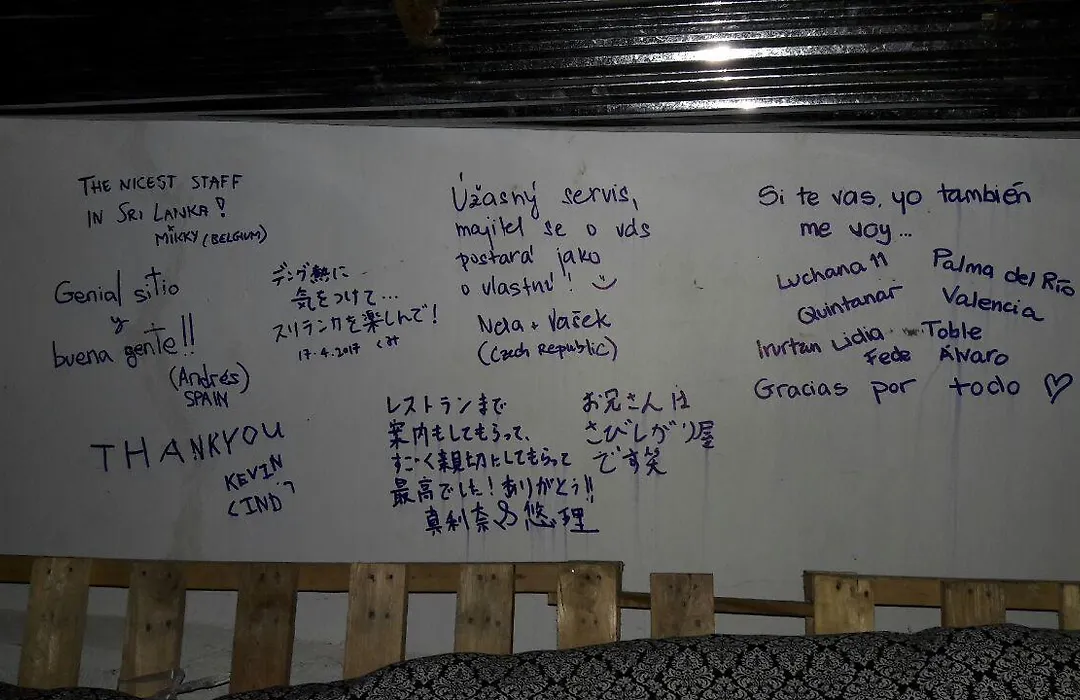 THE NICEST STAFF
IN SRI LANKA!
MIKKY (BELGIUM)
Genial sitio
y
buena gente!!
(Andrés)
SPAIN
THANKYOU
KEVIN
デング熱に
気をつけて...
スリランカを楽しんで!
17.4.2017 くみ
Úžasný servis,
majitel se o vás
postará jako
o vlastní!
Nela + Vašek
(Czech Republic)
レストランまで
案内もしてもらって、
すごく親切にしてもらって
最高でした!ありがとう!!
真利奈&悠理
お兄さんは
さびしがり屋
です笑
Si te vas, yo también
me voy...
Luchana 11
Palma del Río
Quintanar
Valencia
Lidia
Toble
Fede Álvaro
Gracias por todo ♡